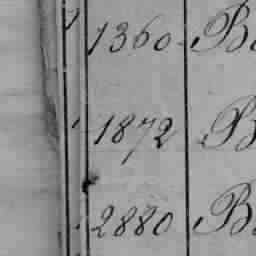 1360 B
1872 B
2880 B